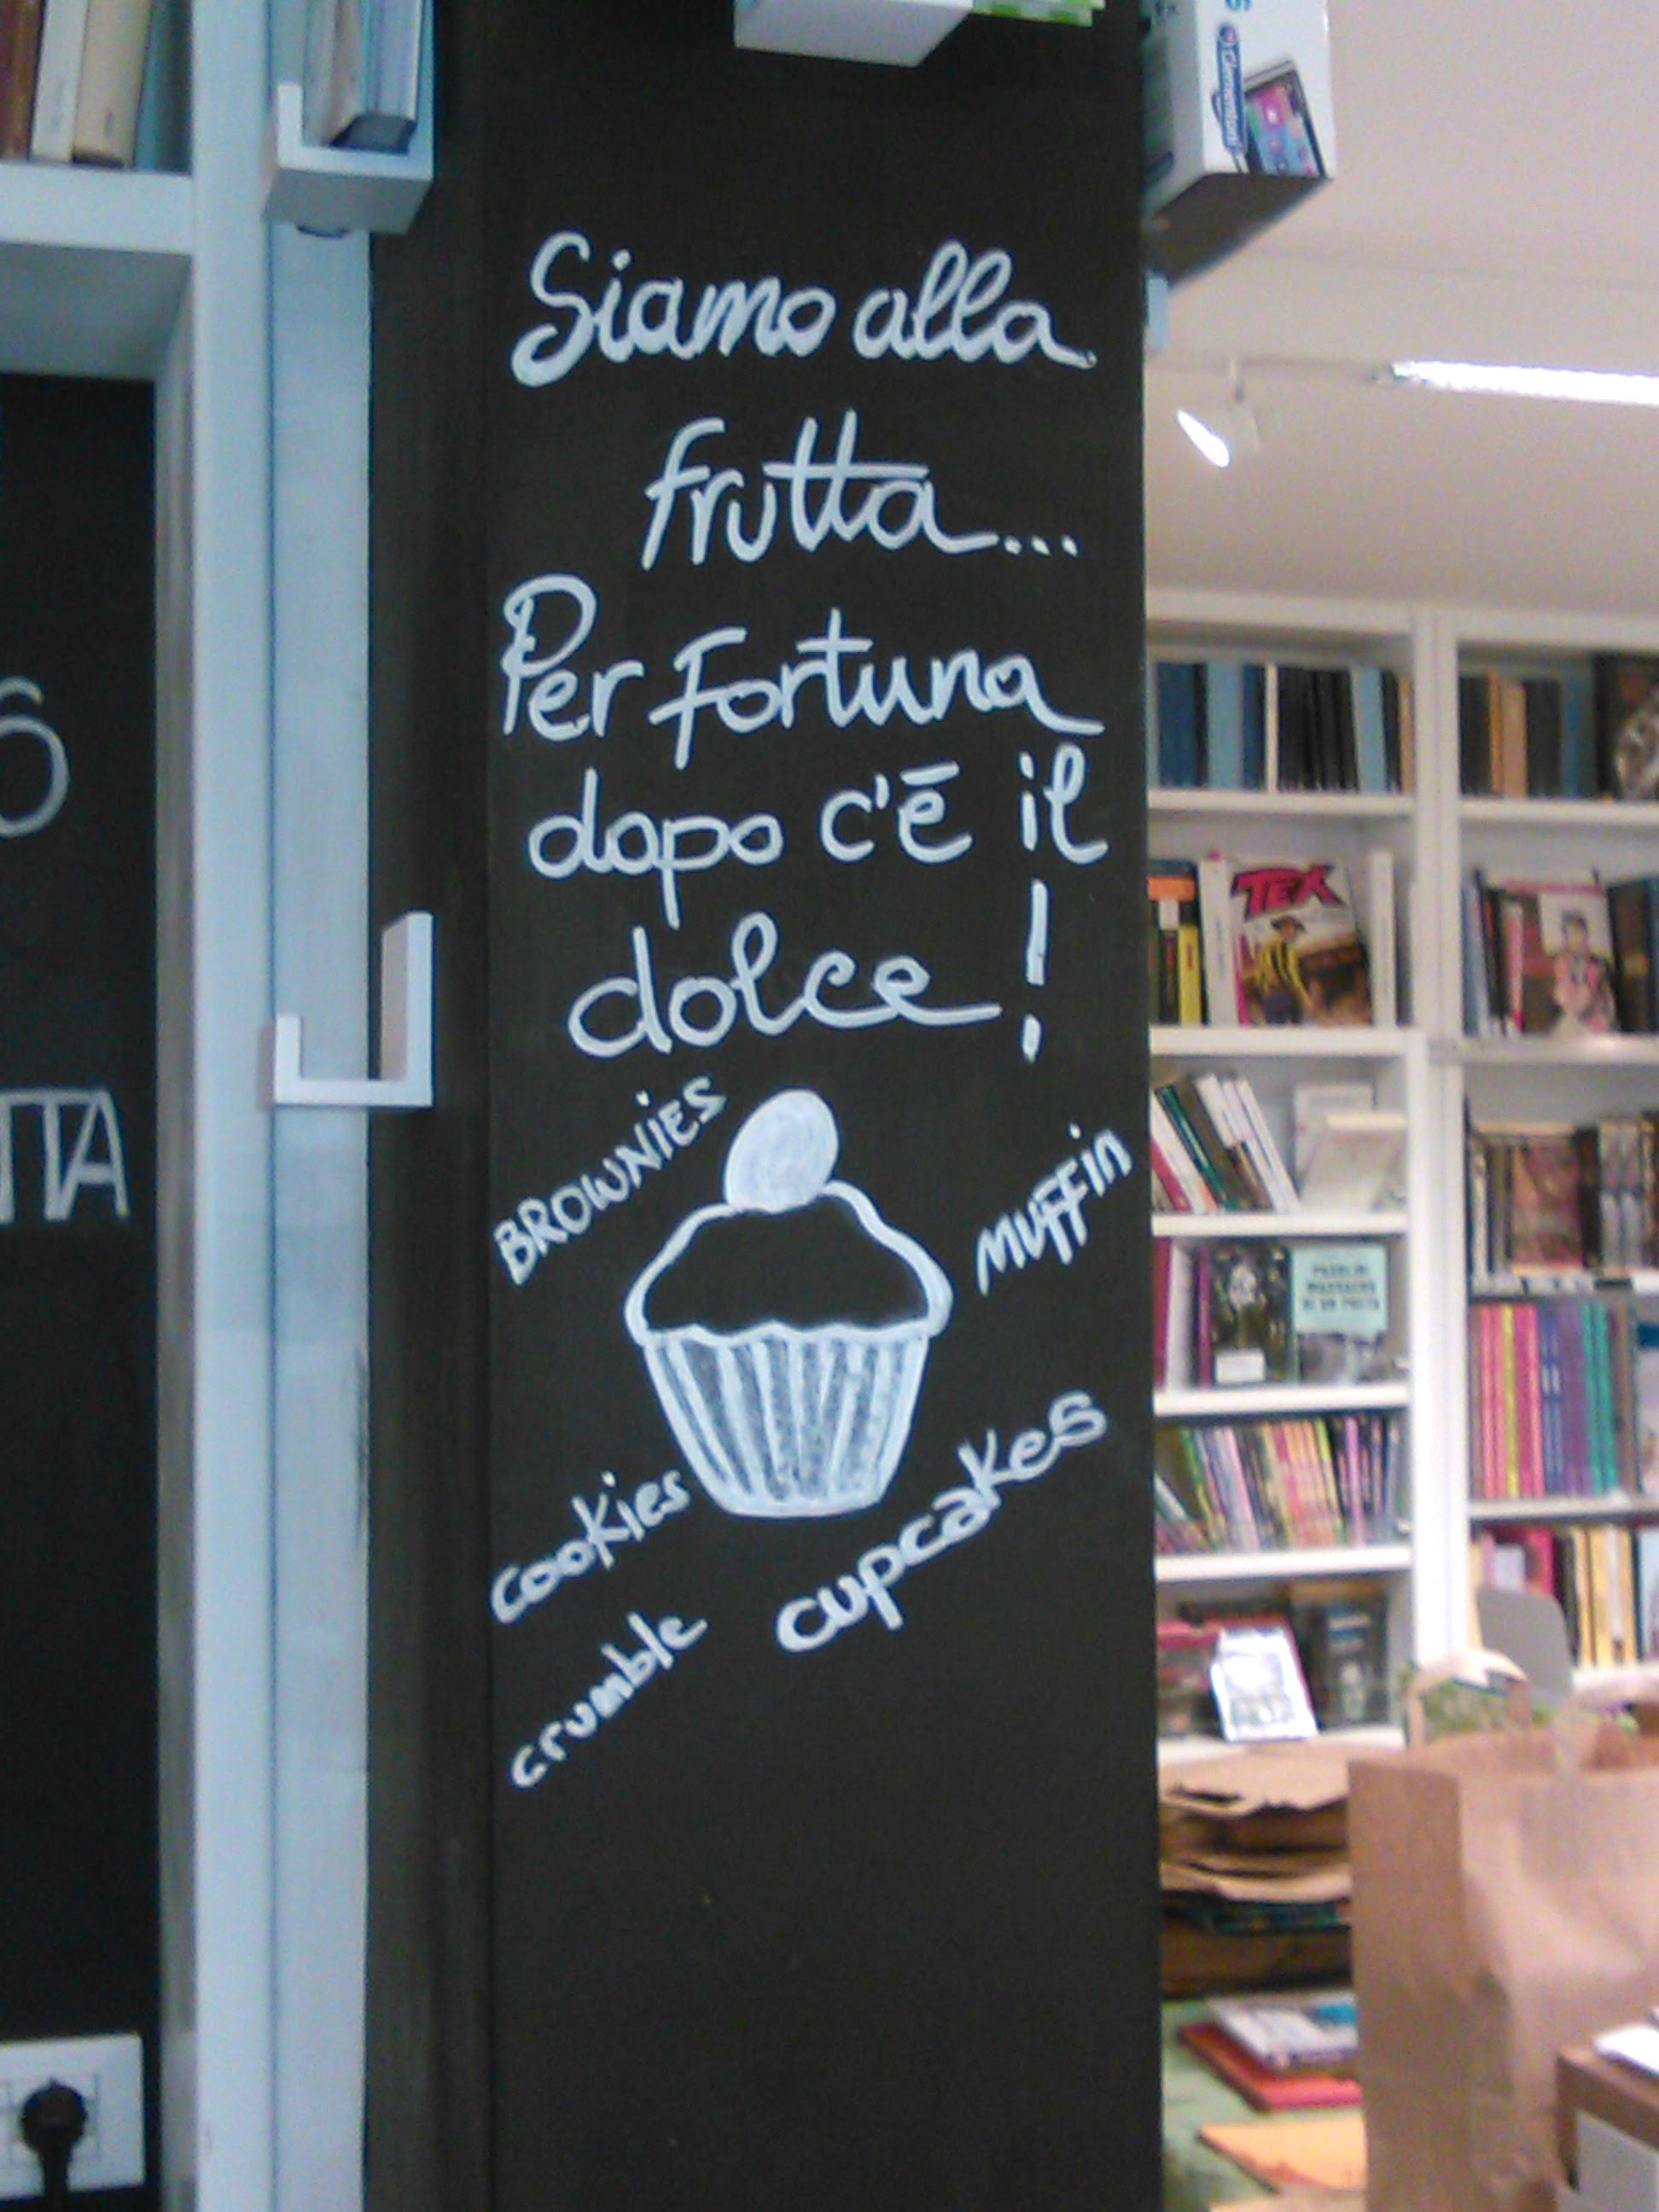 Clementoni
Siamo alla
frutta...
Per fortuna
dopo c'ē il
dolce!
BROWNIES
MUFFiN
cookies
cupcakes
crumble
6
TTA
TEX